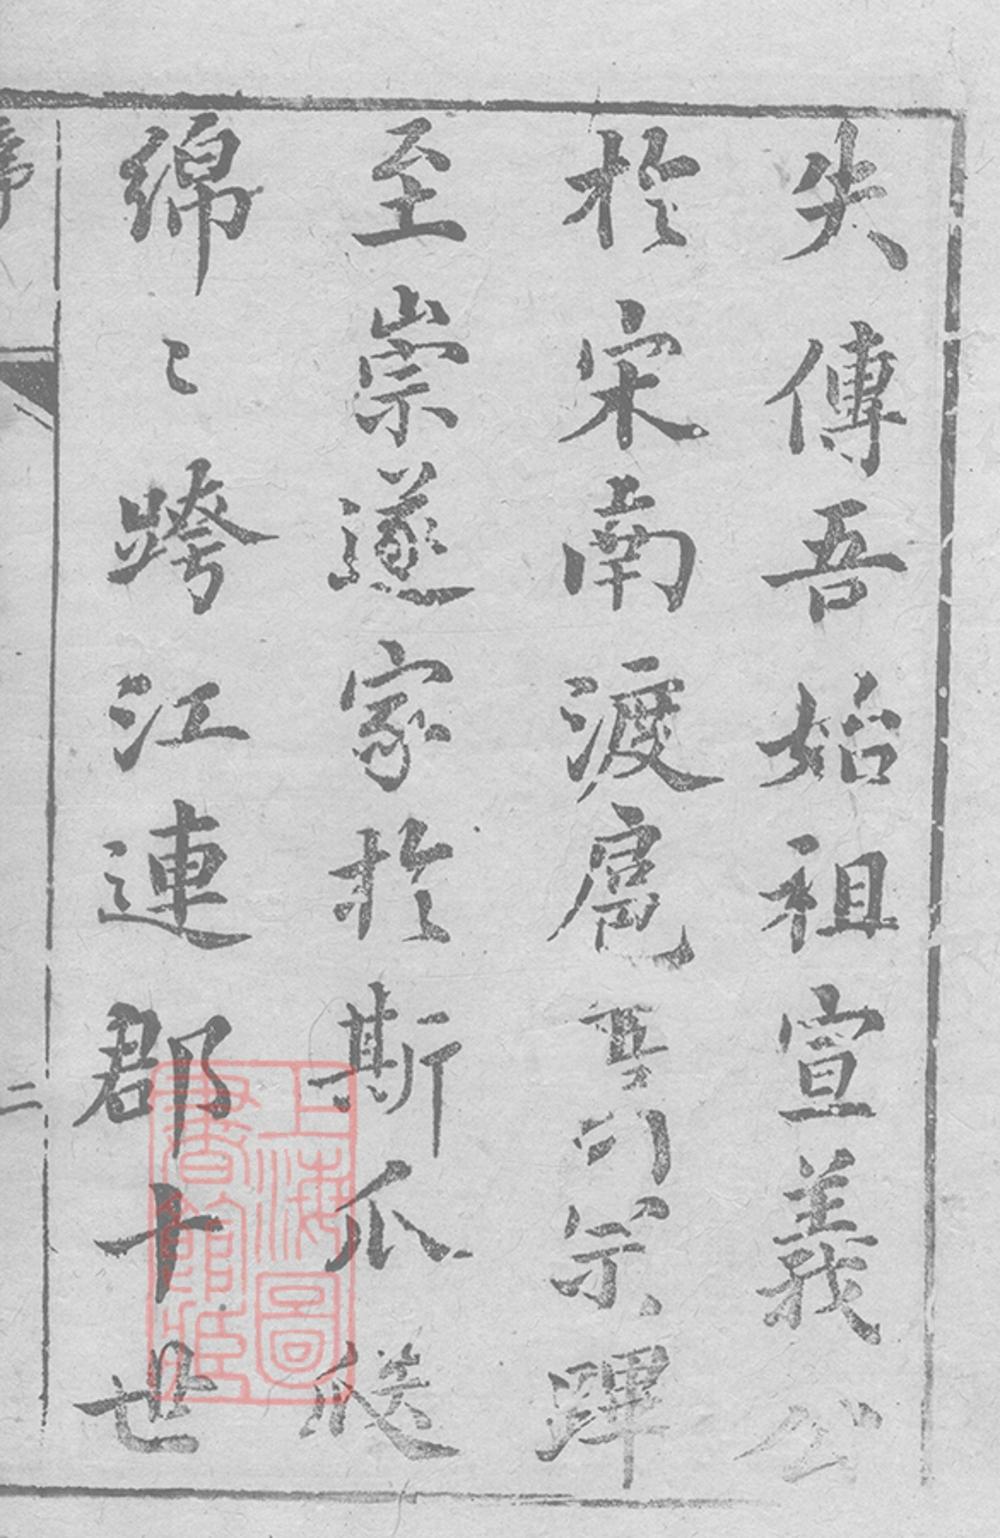 失傳吾始祖宣義公
於宋南渡扈
蹕
至崇遂家於斯瓜瓞
綿〻跨江連郡十世
序
二
上海圖書館藏